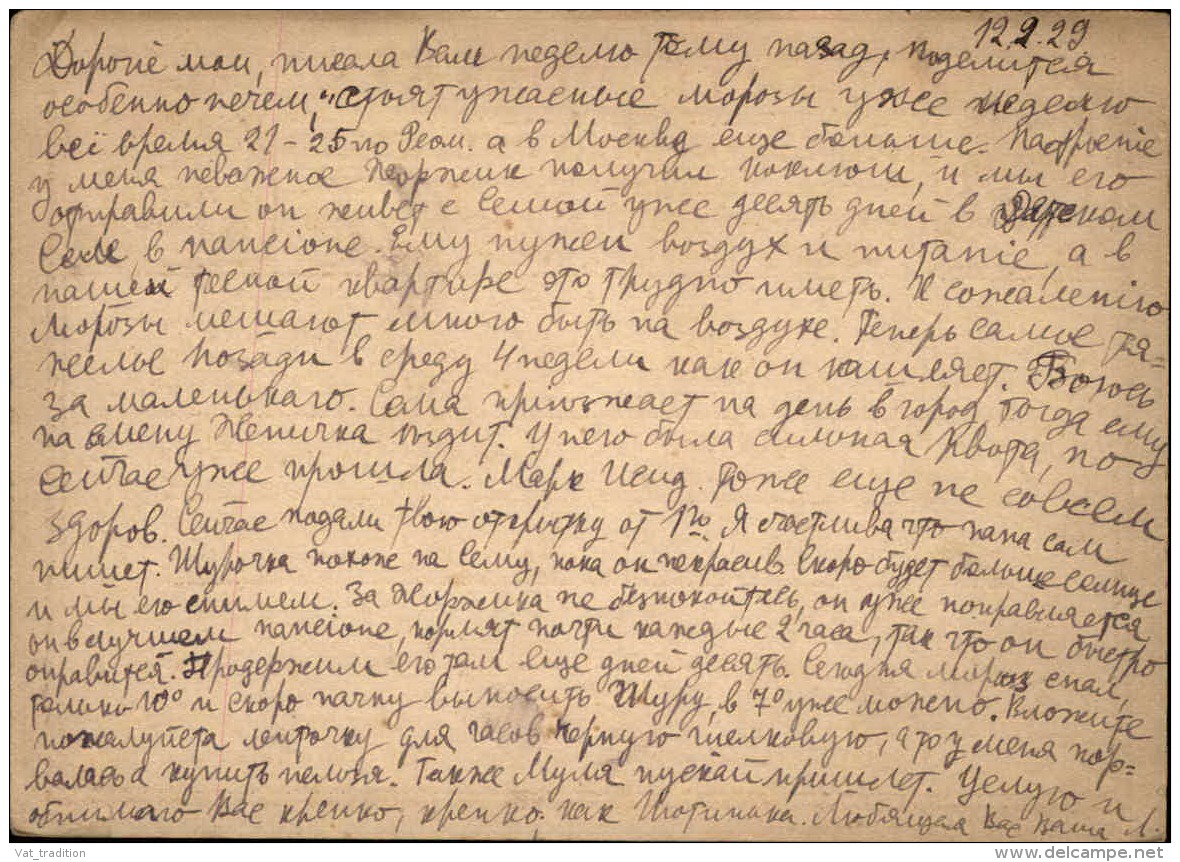 12.2.29
Дорогiе мои, писала Вам неделю тому назад, поделится
особенно нечем, стоят ужасные морозы уже неделю
всё время 21-25 по Реом. а в Москве еще больше. Настроенiе
у меня неважное Жоржик получил коклюш, и мы его
отправили он живет с Семой уже десять дней в Детском
Селе, в пансiоне. Ему нужен воздух и питанiе, а в
нашей тесной квартире это трудно иметь. К сожаленiю
морозы мешают много быть на воздухе. Теперь самое тя=
желое позади в среду 4 недели как он кашляет. Боюсь
за маленькаго. Сема приезжает на день в город, тогда ему
на смену Женичка ездит. У него была сильная рвота, но
сейчас уже прошла. Марк Исид. тоже еще не совсем
здоров. Сейчас подали твою открытку от 1го. Я счастлива что папа сам
пишет. Шурочка похож на Сему, пока он некрасив. Скоро будет больше солнце
и мы его снимем. За Жоржика не безпокойтесь, он уже поправляется
он в лучшем пансiоне, кормят почти каждые 2 часа, так что он быстро
оправится. Продержим его там еще дней десять. Сегодня мороз спал,
только 10° и скоро начну выносить Шуру, в 7° уже можно. Вложите
пожалуйста ленточку для часов черную шелковую, а то у меня пор=
валась а купить нельзя. Также Муля пускай пришлет. Целую и
обнимаю Вас крепко, крепко. Как Любящая Вас Ваша Л.
Vat_tradition
www.delcampe.net